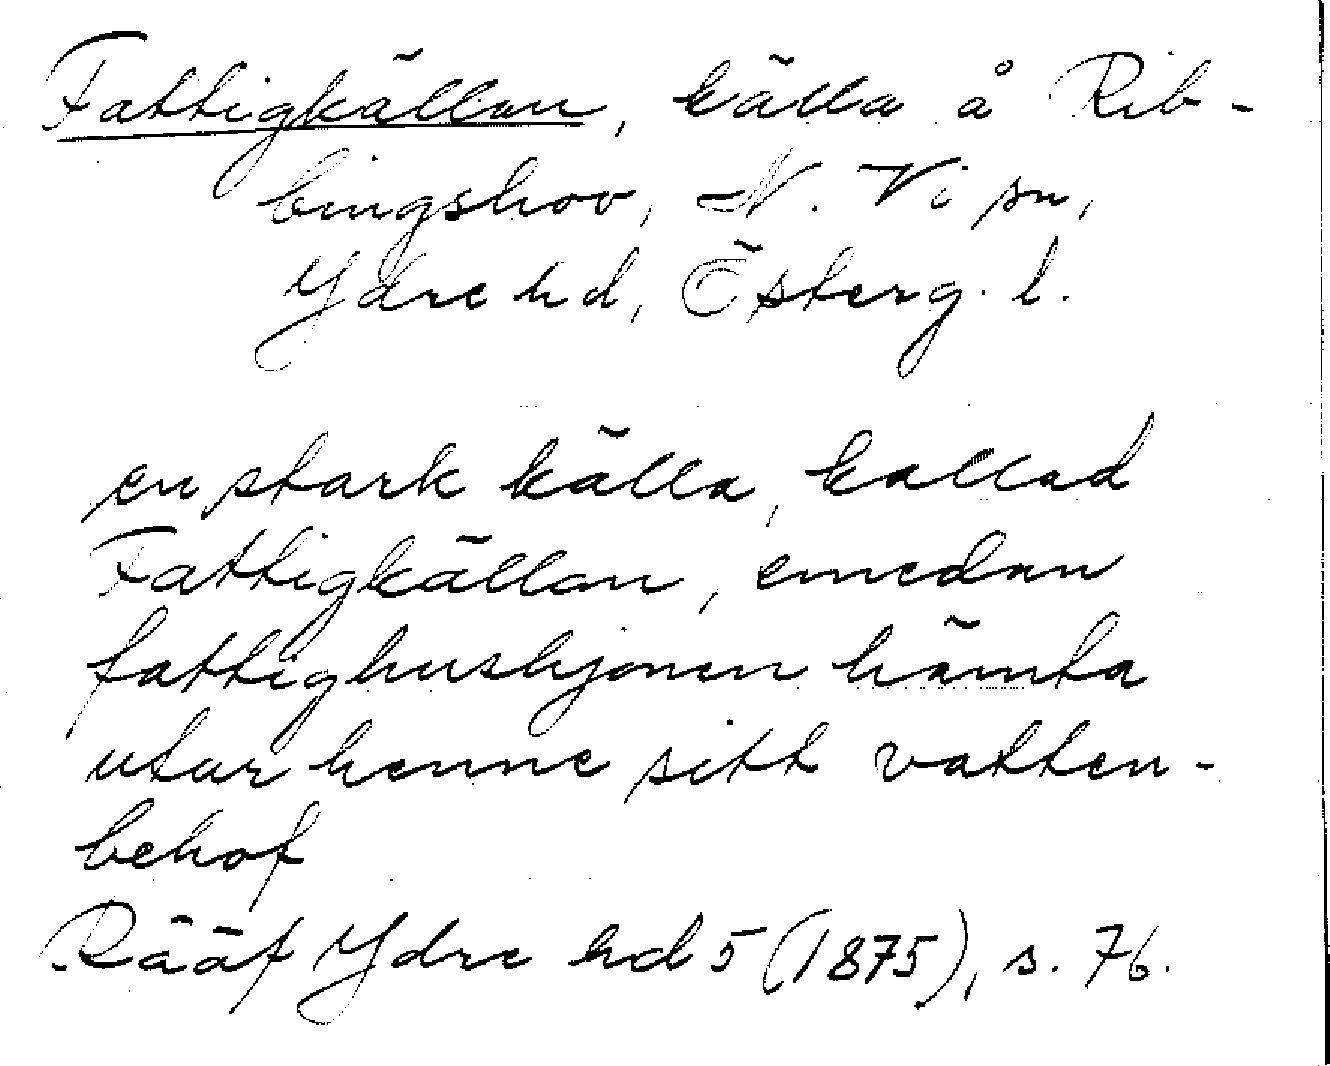 Fattigkällan, källa å Rib-
bingshov, N. Vi sn,
Ydre hd, Österg. l.
en stark källa, kallad
Fattigkällan, emedan
fattighushjonen hämta
utur henne sitt vatten-
behof
Rääf Ydre hd 5 (1875), s. 76.